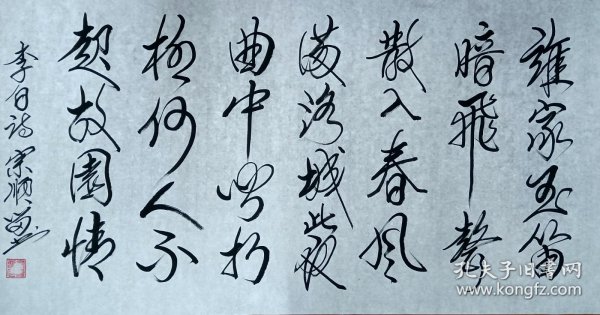 誰家玉笛
暗飛聲
散入春風
滿洛城此夜
曲中聞折
柳何人不
起故園情
李白诗 宗順書
孔夫子旧书网
www.kongfz.com